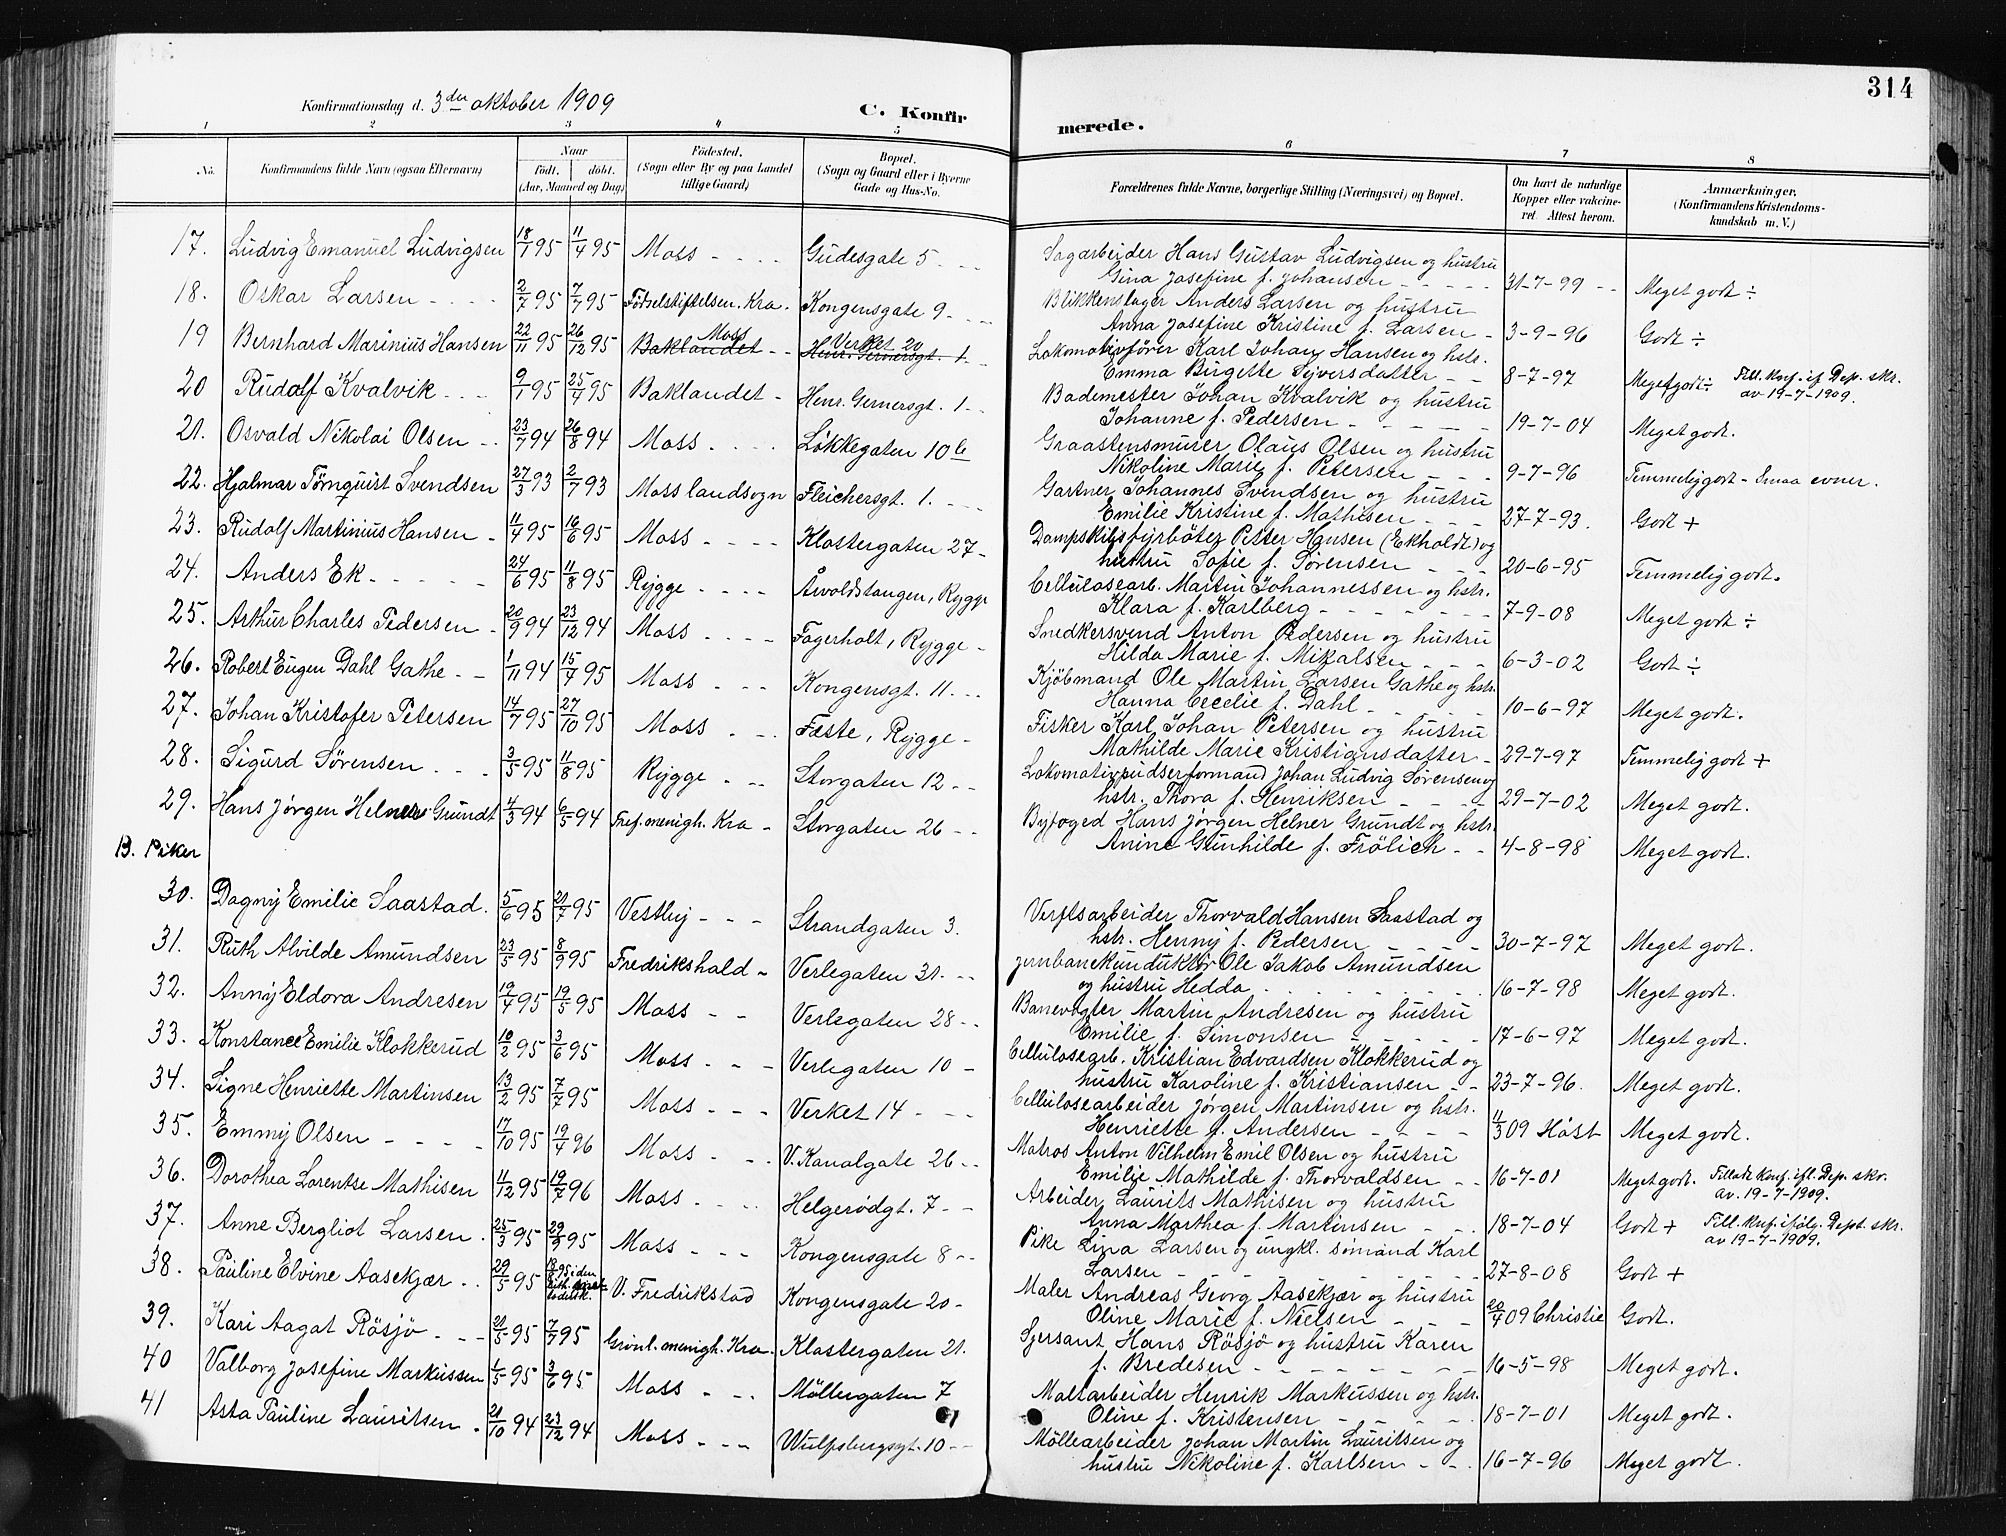 314
Konfirmationsdag d. 3die oktober 1909
C. Konfirmerede.
1 2 3 4 5 6 7 8
No. Konfirmandens fulde Navn (ogsaa Efternavn) Naar födt. döbt. (Aar, Maaned og Dag) Födested. (Sogn eller By og paa Landet tillige Gaard) Bopæl. (Sogn og Gaard eller i Byerne Gade og Hus-No. Forældrenes fulde Navne, borgerlige Stilling (Næringsvei) og Bopæl. Om havt de naturlige Kopper eller vakcineret. Attest herom. Anmærkninger. (Konfirmandens Kristendomskundskab m. V.)
17. Ludvig Emanuel Ludvigsen 18/1 95 11/4 95 Moss Gudesgate 5 Sagarbeider Hans Gustav Ludvigsen og hustru
Gina Josefine f. Johansen 31-7-99 Meget godt ÷
18. Oskar Larsen 2/7 95 7/7 95 Födselstiftelsen. Kra. Kongensgate 9 Blikkenslager Anders Larsen og hustru
Anna Josefine Kristine f. Larsen 3-9-96 Godt ÷
19 Bernhard Marinius Hansen 22/11 95 26/12 95 Baklandet Moss Henr. Gernersgt. 1 Verket 20 Lokomotivförer Karl Johan Hansen og hstr.
Emma Birgette Syversdatter 8-7-97 Meget godt ÷ Till. knf. if. Dep. skr. av 19-7-1909.
20 Rudolf Kvalvik 9/1 95 25/4 95 Baklandet Henr. Gernersgt. 1 Bademester Johan Kvalvik og hustru
Johanne f. Pedersen 19-7-04 Meget godt.
21. Osvald Nikolai Olsen 23/7 94 26/8 94 Moss Løkkegaten 10 b Graastensmurer Olaus Olsen og hustru
Nikoline Marie f. Petersen 9-7-96 Temmelig godt - Smaa evner.
22. Hjalmar Törnquist Svendsen 27/3 93 2/7 93 Moss landsogn Fleichersgt. 1. Gartner Johannes Svendsen og hustru
Emilie Kristine f. Mathisen 27-7-93. Godt +
23. Rudolf Martinius Hansen 11/4 95 16/6 95 Moss Klostergaten 27 Dampskibsfyrböter Petter Hansen (Ekholdt) og
hustru Sofie f. Sørensen 20-6-95 Temmelig godt.
24. Anders Ek 24/6 95 11/8 95 Rygge Årvoldstangen, Rygge Cellulosearb. Martin Johannessen og hstr.
Klara f. Karlberg 7-9-08 Meget godt ÷
25. Arthur Charles Pedersen 20/9 94 23/12 94 Moss Fagerholt, Rygge Snedkersvend Anton Pedersen og hustru
Hilda Marie f. Mikalsen 6-3-02 Godt ÷
26. Robert Eugen Dahl Gathe 1/11 94 15/7 95 Moss Kongensgt. 11. Kjöbmand Ole Martin Larsen Gathe og hstr.
Hanna Cecelie f. Dahl 10-6-97 Meget godt.
27. Johan Kristofer Petersen 14/7 95 27/10 95 Moss Fæste, Rygge Fisker Karl Johan Petersen og hustru
Mathilde Marie Kristiansdatter 29-7-97 Temmelig godt +
28. Sigurd Sörensen 3/5 95 11/8 95 Rygge Storgaten 12 Lokomotivpudserformand Johan Ludvig Sörensen og
hstr. Thora f. Henriksen 29-7-02 Meget godt.
29. Hans Jørgen Helner Grundt 4/3 94 6/5 94 Tref. menigh. Kra Storgaten 26 Byfoged Hans Jørgen Helner Grundt og hstr.
Anine Gunhilde f. Frölich 4-8-98 Meget godt.
B. Piker
30. Dagny Emilie Saastad. 5/6 95 21/7 95 Vestby Strandgaten 3. Verftsarbeider Thorvald Hansen Saastad og
hstr. Henny f. Pedersen 30-7-97 Meget godt.
31. Ruth Alvilde Amundsen 23/5 95 8/9 95 Fredrikshald Verlegaten 31. Jernbanekunduktör Ole Jakob Amundsen
og hustru Hedda 16-7-98 Meget godt.
32. Anny Eldora Andresen 19/4 95 19/5 95 Moss Verlegaten 28 Banevogter Martin Andresen og hustru
Emilie f. Simonsen 17-6-97 Meget godt.
33. Konstance Emilie Klokkerud 10/2 95 3/6 95 Moss Verlegaten 10 Cellulosearb. Kristian Edvardsen Klokkerud og
hustru Karoline f. Kristiansen 23-7-96. Meget godt.
34. Signe Henriette Martinsen 13/2 95 7/7 95 Moss Verket 14 Cellulosearbeider Jörgen Martinsen og hstr.
Henriette f. Andersen 11/3 09 Høst Meget godt.
35. Emmy Olsen 17/10 95 19/4 96 Moss V. Kanalgate 26 Matros Anton Vilhelm Emil Olsen og hustru
Emilie Mathilde f. Thorvaldsen 16-7-01 Meget godt. Tilladt knf. ifl. Dep. skr. av. 19-7-1909.
36. Dorothea Lorentse Mathisen 11/12 95 19/7 96 Moss Helgerødgt. 7 Arbeider Laurits Mathisen og hustru
Anna Marthea f. Martinsen 18-7-04 Godt + Till. knf. ifølg. Dept. skr. av 19-7-1909.
37. Anne Bergliot Larsen 25/3 95 29/9 95 Moss Kongensgate 8 Pike Lina Larsen og ungkl. sömand Karl
Larsen 27-8-08 Godt +
38. Pauline Elvine Aasekjær 29/5 95 V. Fredrikstad Kongensgate 20 Maler Andreas Georg Aasekjær og hustru
Oline Marie f. Nielsen 20/4 09 Christie Godt.
39. Kari Aagat Rösjö 21/5 95 7/7 95 Grönl. menigh. Kra. Klostergaten 21. Sersant Hans Rösjö og hustru Karen
f. Bredesen 16-5-98 Meget godt.
40 Valborg Josefine Markussen 1/5 95 3/6 95 Moss Möllergaten 7 Maltarbeider Henrik Markussen og hstr.
Oline f. Kristensen 18-7-01 Meget godt.
41 Asta Pauline Lauritsen 21/10 94 23/12 94 Moss Wulfsbergsgt. 10 Möllearbeider Johan Martin Lauritsen og
hustru Nikoline f. Karlsen 16-7-96 Meget godt.